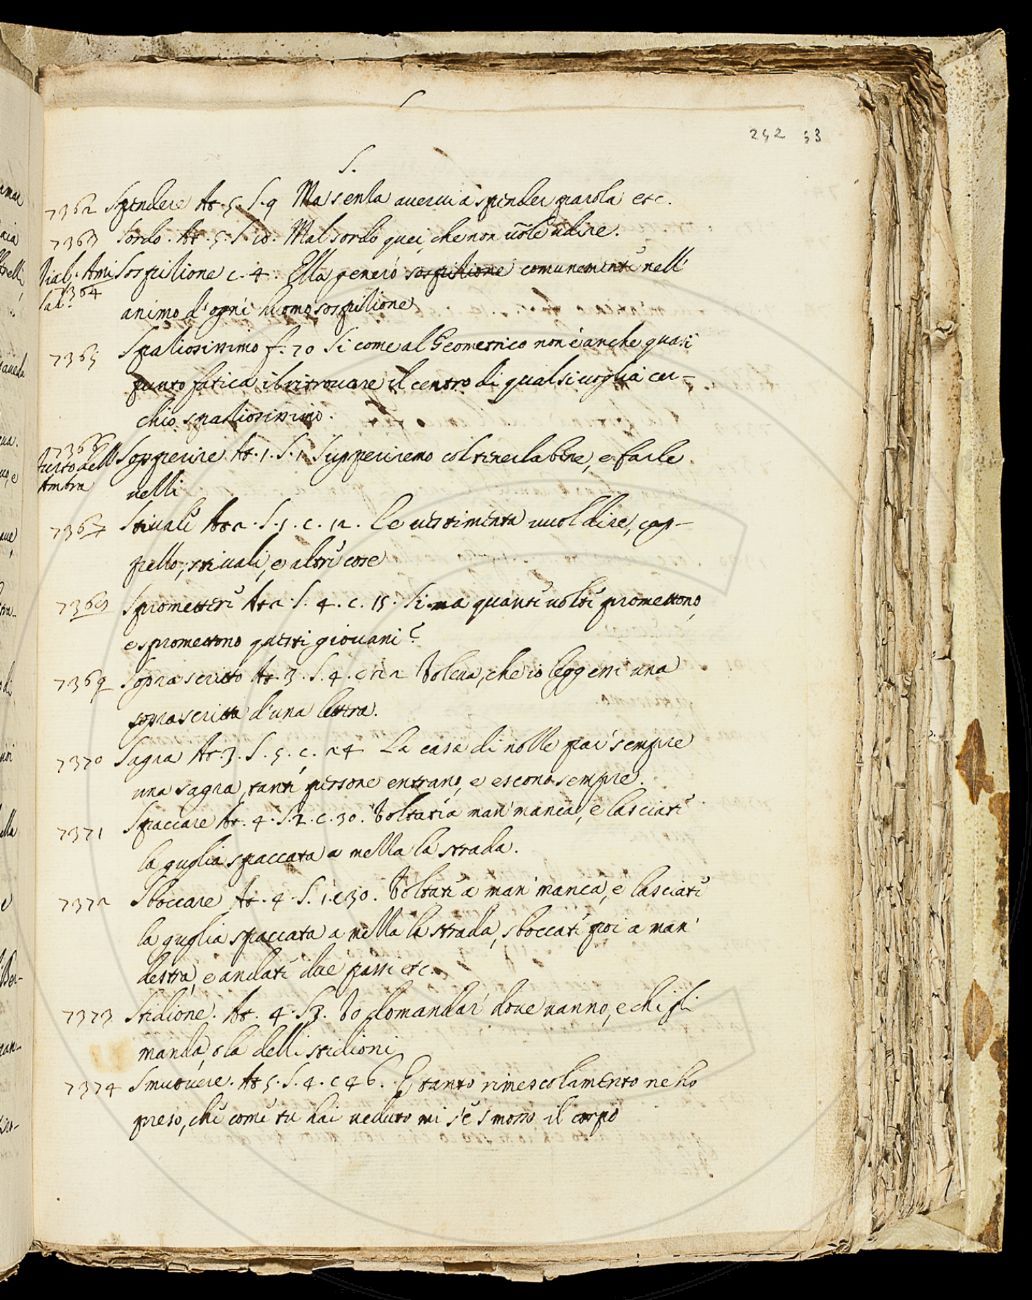 242 53
S.
7362 Spendere At. 5. S. 9 Ma senza avervi a spender parola etc.
7363 Sordo. At. 5. S. 10. Mal sordo quei, che non vole udire.
Dial. Ami Sospitione c. 4. Ella generò sospitione comunemente nell'
Sal. 7364
animo d'ogni uomo sospitione
7365 Spatiosissimo f. 70 Si come al Geometrico non è anche quasi
punto fatica il ritrovare il centro di qualsivoglia cer-
chio spatiosissimo.
7366 Sopperire At. 1. S. 1. Suppliremo col tinerla bene, e farle
Furto dell'
Ambra
velli
7367 Stivali At 2. S. 1. c. 12. Le vestimenta vuol dire, cap-
pello, stivali, e altre cose
7368 Sprometteri At 2 S. 4. c. 15. Si ma quante volte promettono,
e spromettono questi giovani?
7369 Soprascritto At. 3. S. 4. Voleva, che io leggessi una
soprascritta d'una lettera.
7370 Sagra At. 3. S. 5. c. 24 La casa di nolle par sempre
una sagra, tante persone entrano, e escono sempre.
7371 Spaccare At. 4. S. 2. c. 30. Voltati a man' manca, e lasciati
la guglia spaccata a mezza la strada.
7372 Sboccare At. 4. S. 1. c 30. Voltati a man' manca, e lasciati
la guglia spaccata a mezza la strada, sboccati poi a man'
destra, e andati due passi etc.
7373 Stidione. At. 4. S 3. Vo domandar' dove vanno, e chi gli
manda, o la delli stidioni
7374 Smuovere. At 5. S. 4. c 46. E tanto rimescolamento ne ho
preso, che come tu hai veduto mi s'è smosso il corpo